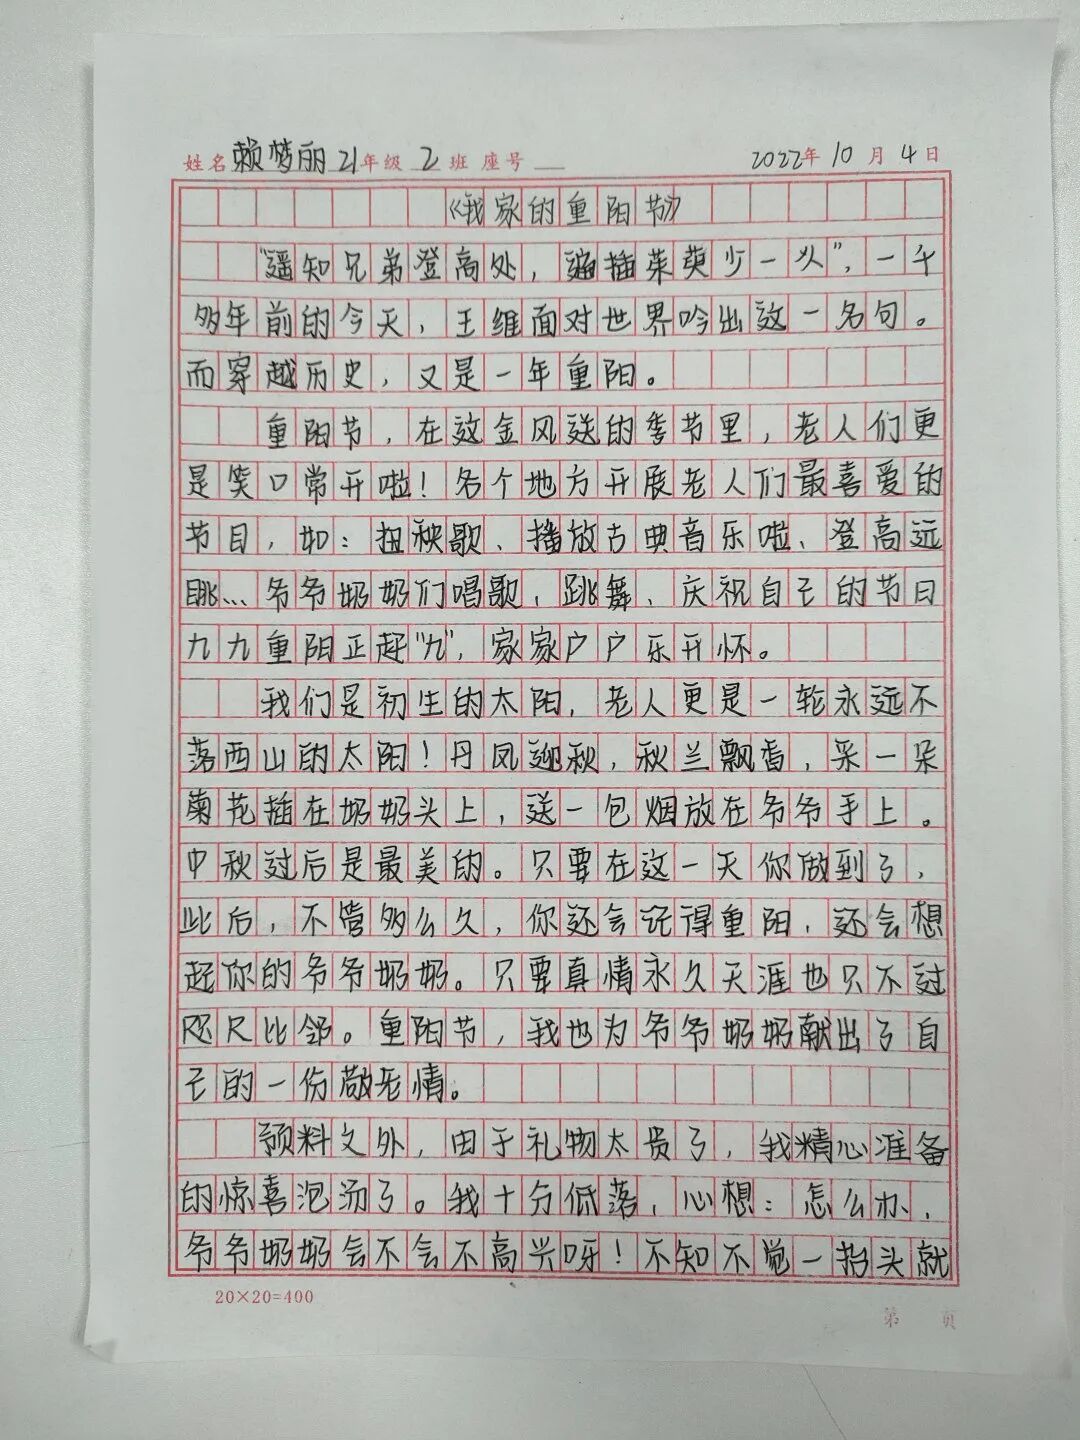 姓名 赖梦丽 21年级 2 班 座号 2022年 10 月 4 日
《我家的重阳节》
“遥知兄弟登高处，遍插茱萸少一人”，一千
多年前的今天，王维面对世界吟出这一名句。
而穿越历史，又是一年重阳。
重阳节，在这金风送的季节里，老人们更
是笑口常开啦！各个地方开展老人们最喜爱的
节目，如：扭秧歌、播放古典音乐啦、登高远
眺…爷爷奶奶们唱歌、跳舞、庆祝自己的节日
九九重阳正赶“九”，家家户户乐开怀。
我们是初生的太阳，老人更是一轮永远不
落西山的太阳！丹凤迎秋，秋兰飘香，采一朵
菊花插在奶奶头上，送一包烟放在爷爷手上。
中秋过后是最美的。只要在这一天你做到了，
此后，不管多么久，你还会记得重阳，还会想
起你的爷爷奶奶。只要真情永久天涯也只不过
咫尺比邻。重阳节，我也为爷爷奶奶献出了自
己的一份敬老情。
预料之外，由于礼物太贵了，我精心准备
的惊喜泡汤了。我十分低落，心想：怎么办，
爷爷奶奶会不会不高兴呀！不知不觉一抬头就
20×20=400
第 页